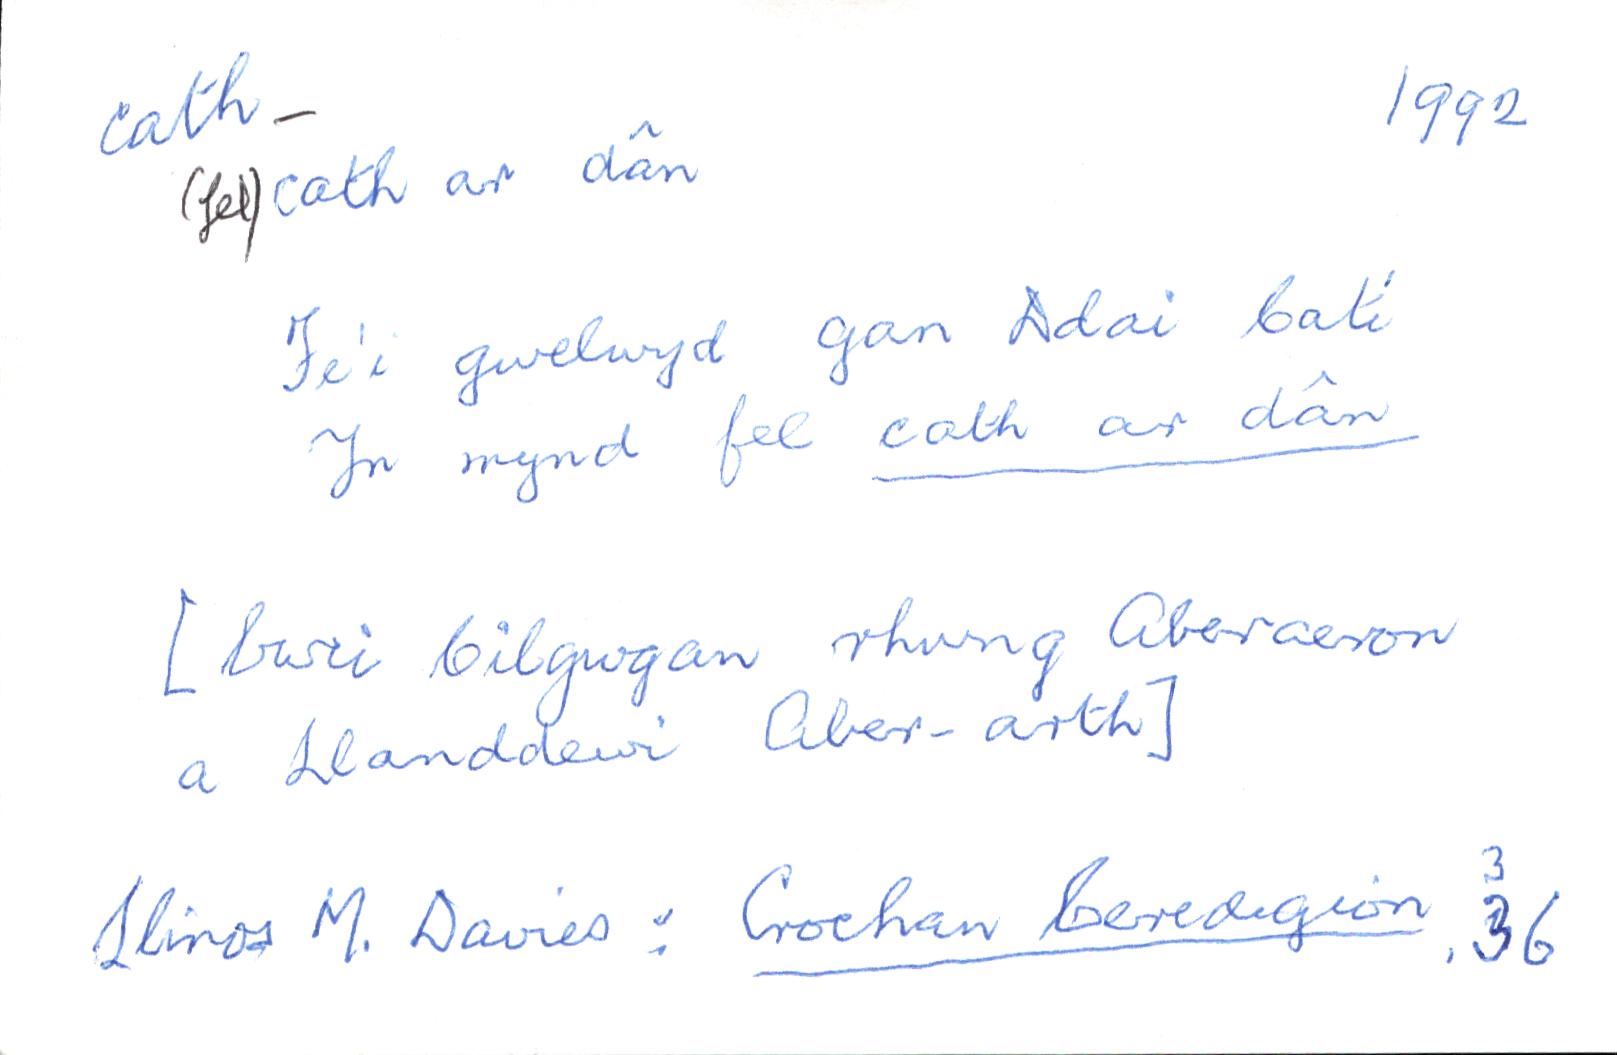 cath – 1992
(fel) cath ar dân
Fe'i gwelwyd gan Adai Cati
Yn mynd fel cath ar dân
[Cwci Cilgwgan rhwng Aberaeron
a Llanddewi Aber-arth]
Llinos M. Davies : Crochan Ceredigion, 36
3